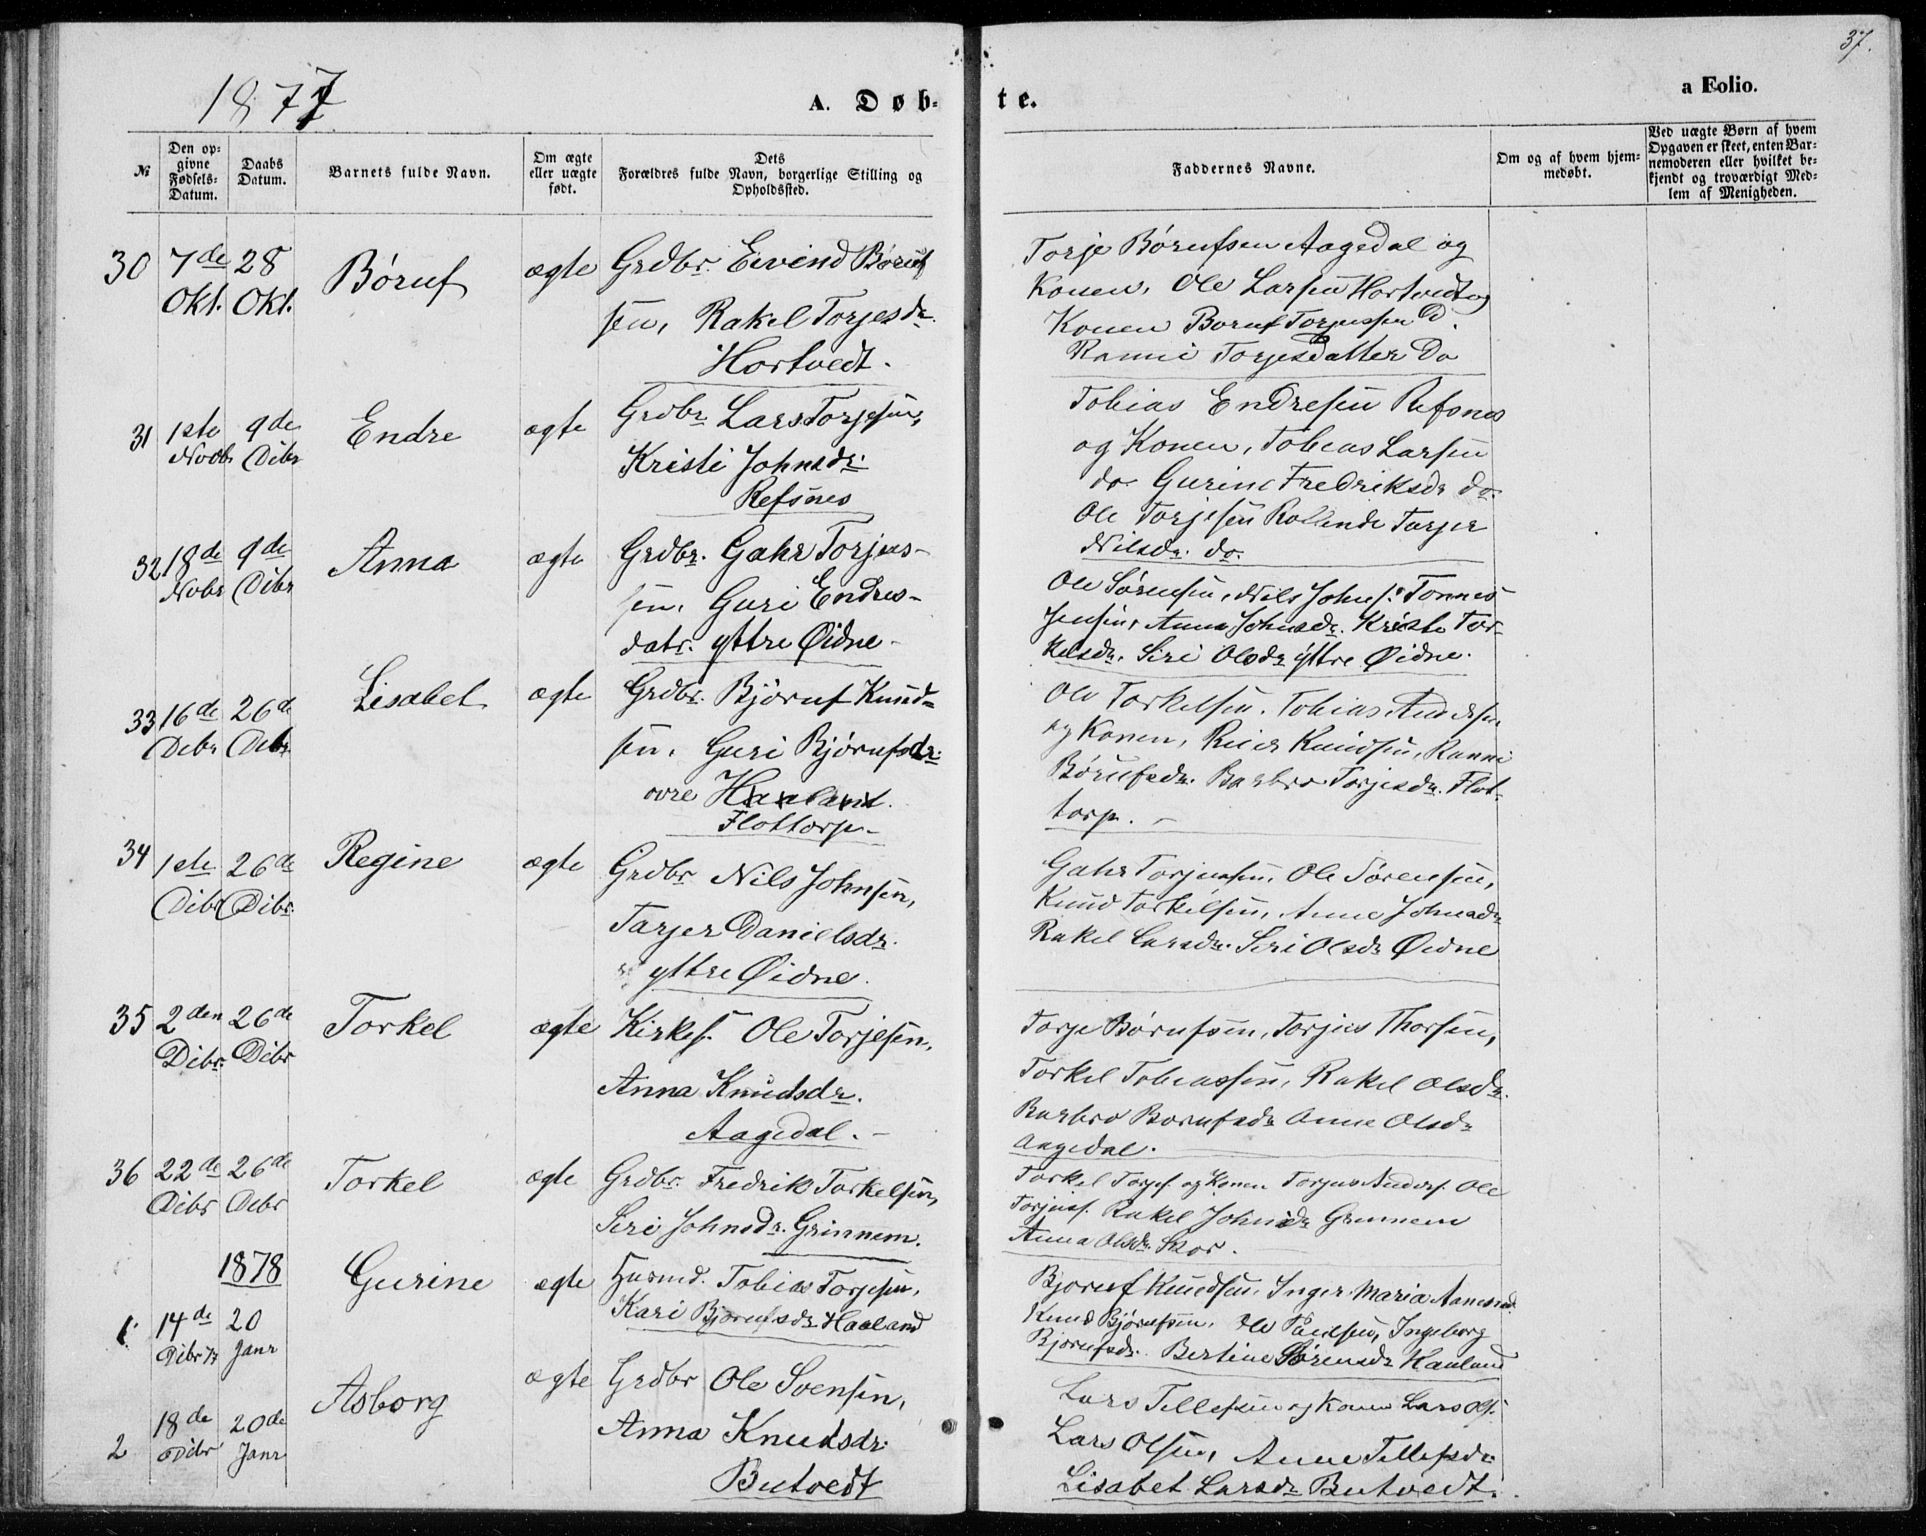 37.
1877
A. Døb-
te.
a Folio.
№
Den op-
givne
Fødsels-
Datum.
Daabs
Datum.
Barnets fulde Navn.
Om ægte
eller uægte
født.
Dets
Forældres fulde Navn, borgerlige Stilling og
Opholdssted.
Faddernes Navne.
Om og af hvem hjem-
medøbt.
Ved uægte Børn af hvem
Opgaven er skeet, enten Bar-
nemoderen eller hvilket be-
kjendt og troværdigt Med-
lem af Menigheden.
30 7de 28 Böruf ægte Grdbr. Eivind Böruf
Okt. Okt. sen, Rakel Torjesdr.
Hortvedt.
Torje Börufsen Aagedal og
Konen, Ole Larsen Hortvedt og
Konen Boruf Torjussen D.
Rannei Torjesdatter Do
31 1ste 9de Endre ægte Grdbr Lars Torjesen,
Novbr Dibr Kristi Johnsdr.
Refsnes
Tobias Endresen Refsnes
og Konen, Tobias Larsen
do. Gurine Fredriksdr do.
Ole Torjesen Tarjer
Nilsdr. do.
32 18de 9de Anna ægte Grdbr. Gahr Torjus-
Nobr Dibr sen, Guri Endres-
datr. yttre Øidne
Ole Sörensen, Nils Johns. Tönnes
Jensen, Anna Johnsdr. Kriste Tor-
kelsdr. Siri Olsdr yttre Øidne.
33 16de 26de Lisabet ægte Grdbr. Björuf Knud-
Debr Debr. sen, Guri Björufsdr.
ovre Haaland.
Flottorp
Ole Torkelsen. Tobias Andersen
og Konen, Reier Knudsen, Ranni
Börufsdr. Barbro Torjesdr. Flot-
torp.
34 1ste 26de Regine ægte Grdbr Nils Johnsen,
Dibr Dibr. Tarjer Danielsdr.
yttre Øidne.
Gahr Torjussen, Ole Sörensen,
Knud Torkelsen, Anne Johnsdr
Rakel Larsdr. Siri Olsdr Øidne
35 2den 26de Torkel ægte Kirkes. Ole Torjesen,
Dibr. Dibr Anna Knudsdr.
Aagedal.
Torje Börufsen, Torjus Thorsen,
Torkel Tobiassen, Rakel Olsdr.
Barbro Borufsdr Anne Olsdr
Aagedal.
36 22de 26de Torkel ægte Grdbr. Fredrik Torkelsen,
Dibr Debr Siri Johnsdr. Grinnem.
Torkel Torjes. og Konen Torjus Anders. Ole
Torjus. Rakel Johnsdr Grinnem
Anna Olsdr. Skor.
1878 Gurine ægte Husmd. Tobias Torjesen,
1 14de 20 Kari Bjorufsdr Haaland
Dibr 77 Janr
Bjoruf Knudsen, Inger Maria
Knud Björufsen, Ole Ingeborg
Bjorufsdr. Bertine Sörensdr Haaland
2 18de 20de Asborg ægte Grdbr Ole Svensen,
Dibr Janr Anna Knudsdr.
Butvedt
Lars Tellefsen og Konen Lars Ols.
Lars Olsen, Anne Tellefsdr.
Lisabet Larsdr Butvedt.